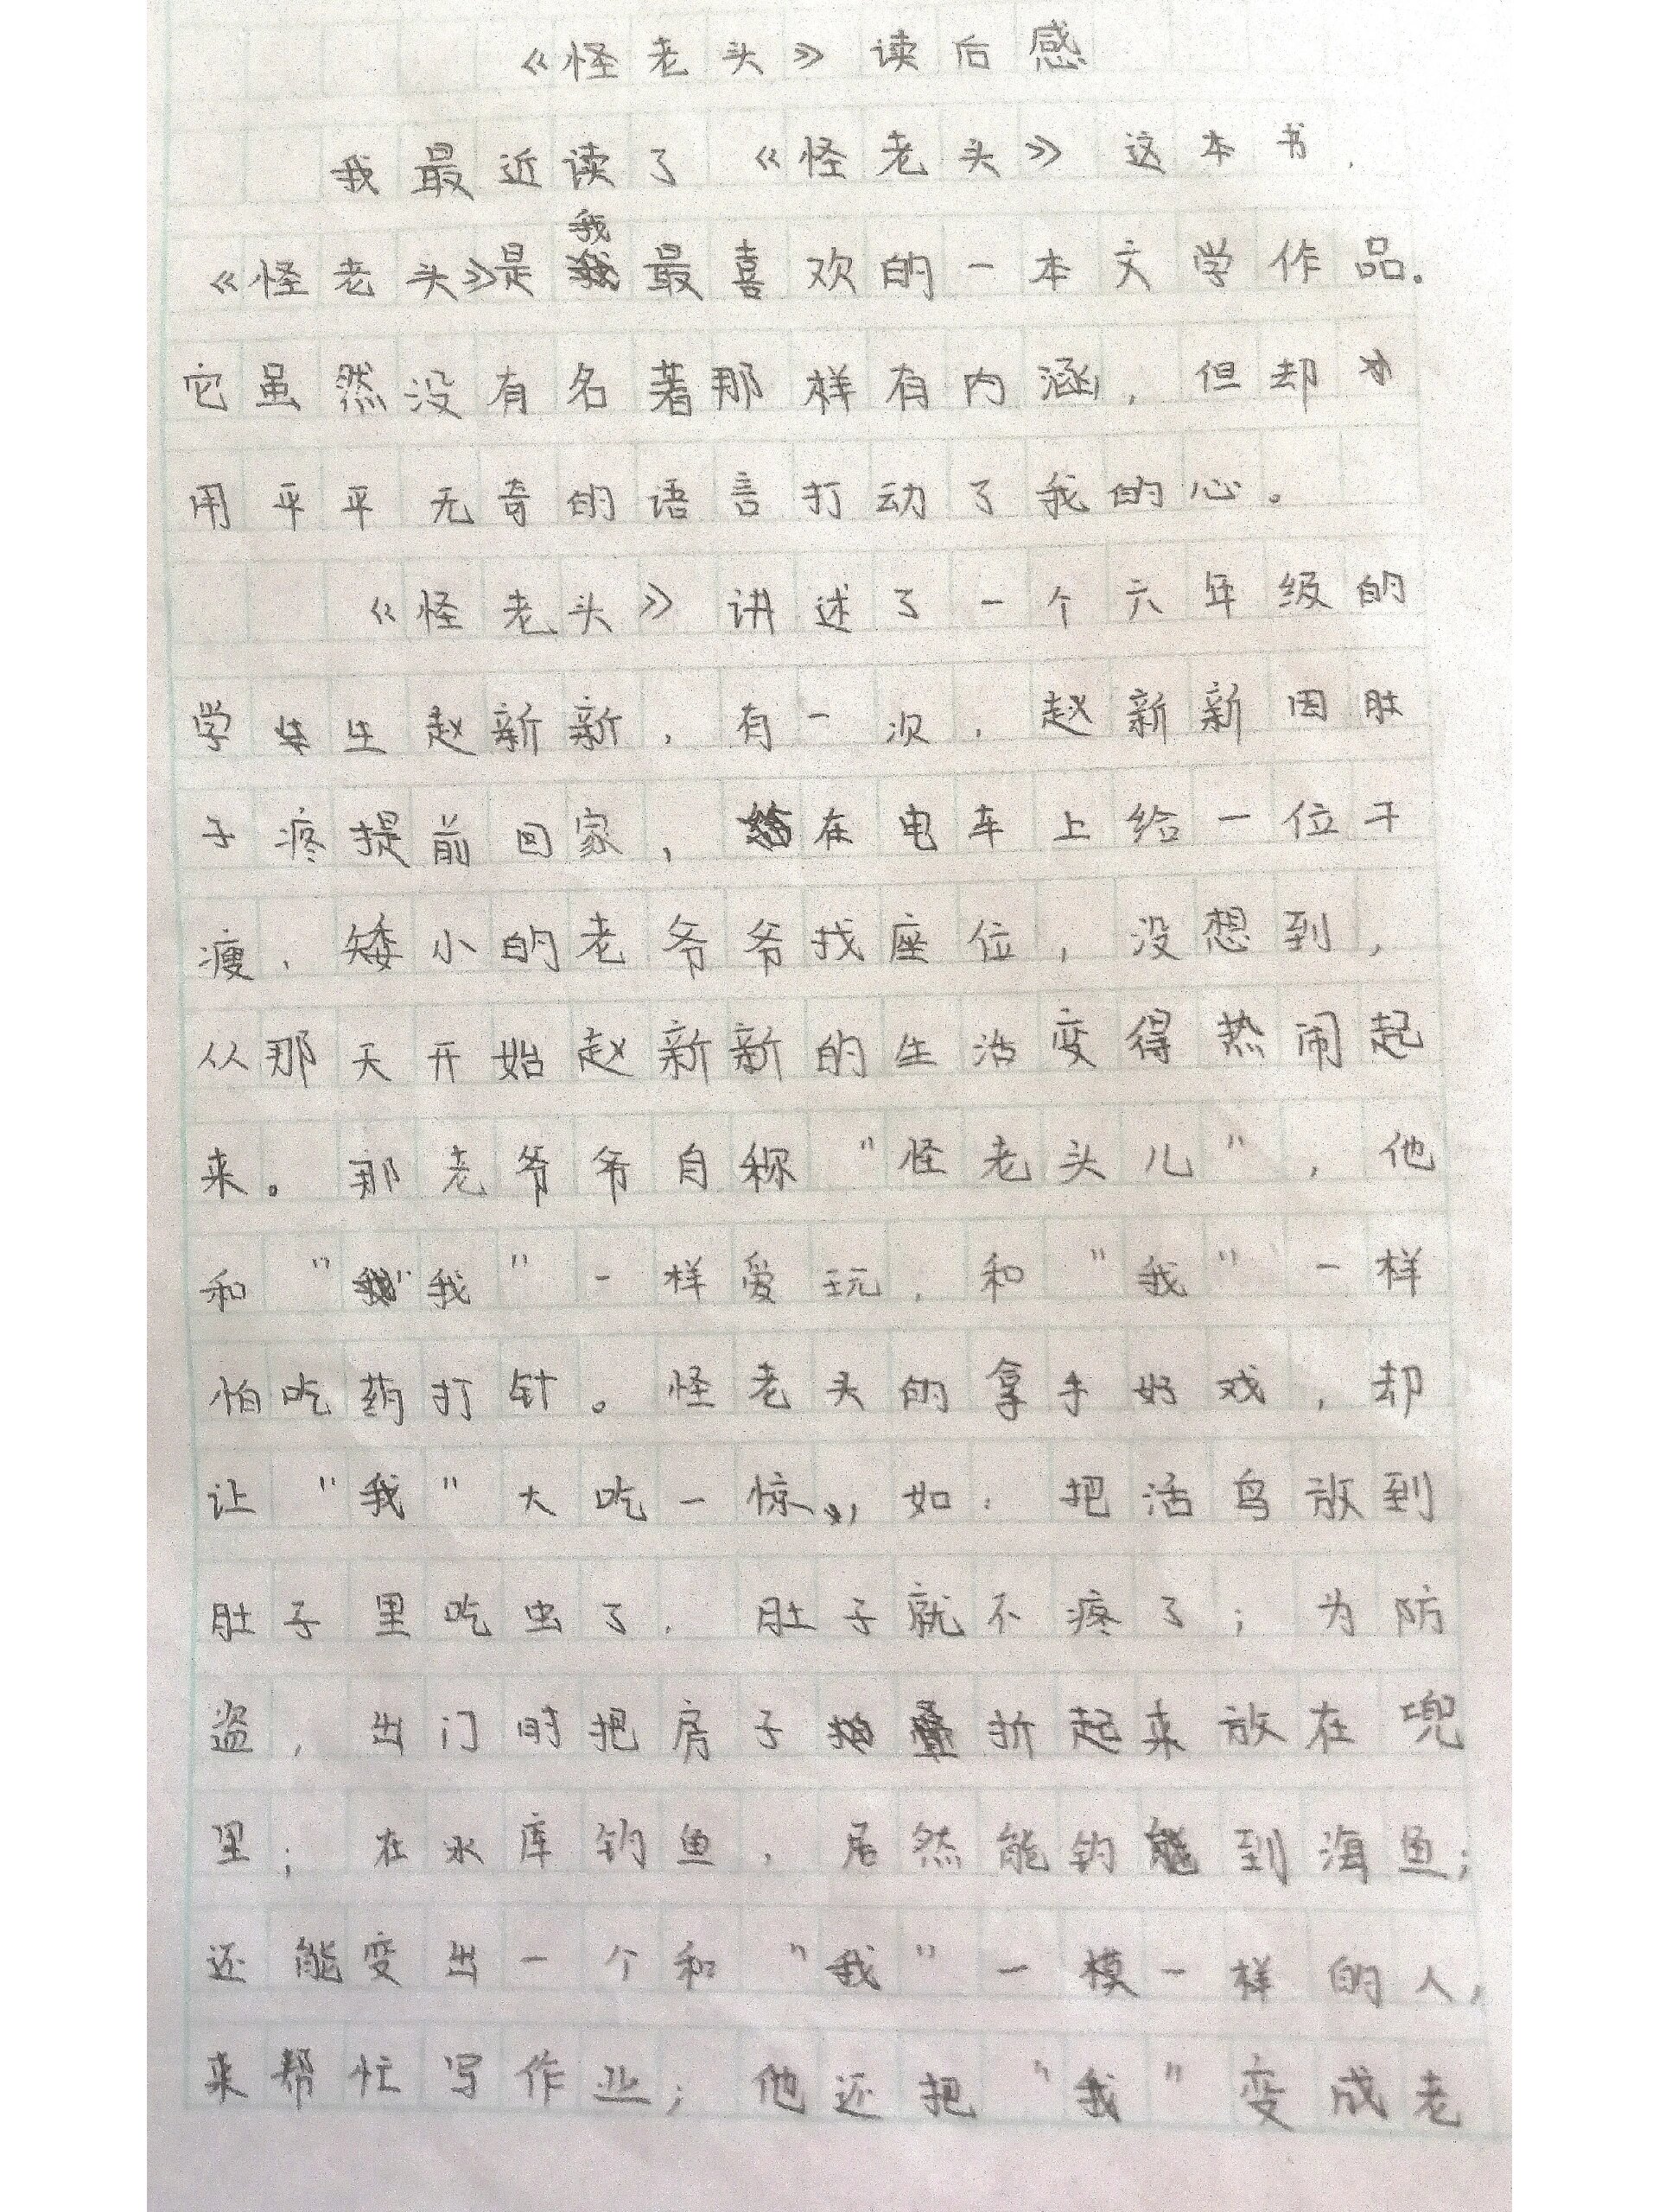 《怪老头》读后感
我最近读了《怪老头》这本书，
《怪老头》是我最喜欢的一本文学作品。
它虽然没有名著那样有内涵，但却
用平平无奇的语言打动了我的心。
《怪老头》讲述了一个六年级的
学生赵新新，有一次，赵新新因肚
子疼提前回家，在电车上给一位干
瘦，矮小的老爷爷找座位，没想到，
从那天开始赵新新的生活变得热闹起
来。那老爷爷自称"怪老头儿"，他
和"我"一样爱玩，和"我"一样
怕吃药打针。怪老头的拿手好戏，却
让"我"大吃一惊，如：把活鸟放到
肚子里吃虫了，肚子就不疼了；为防
盗，出门时把房子叠折起来放在兜
里；在水库钓鱼，居然能钓到海鱼；
还能变出一个和"我"一模一样的人，
来帮忙写作业；他还把"我"变成老